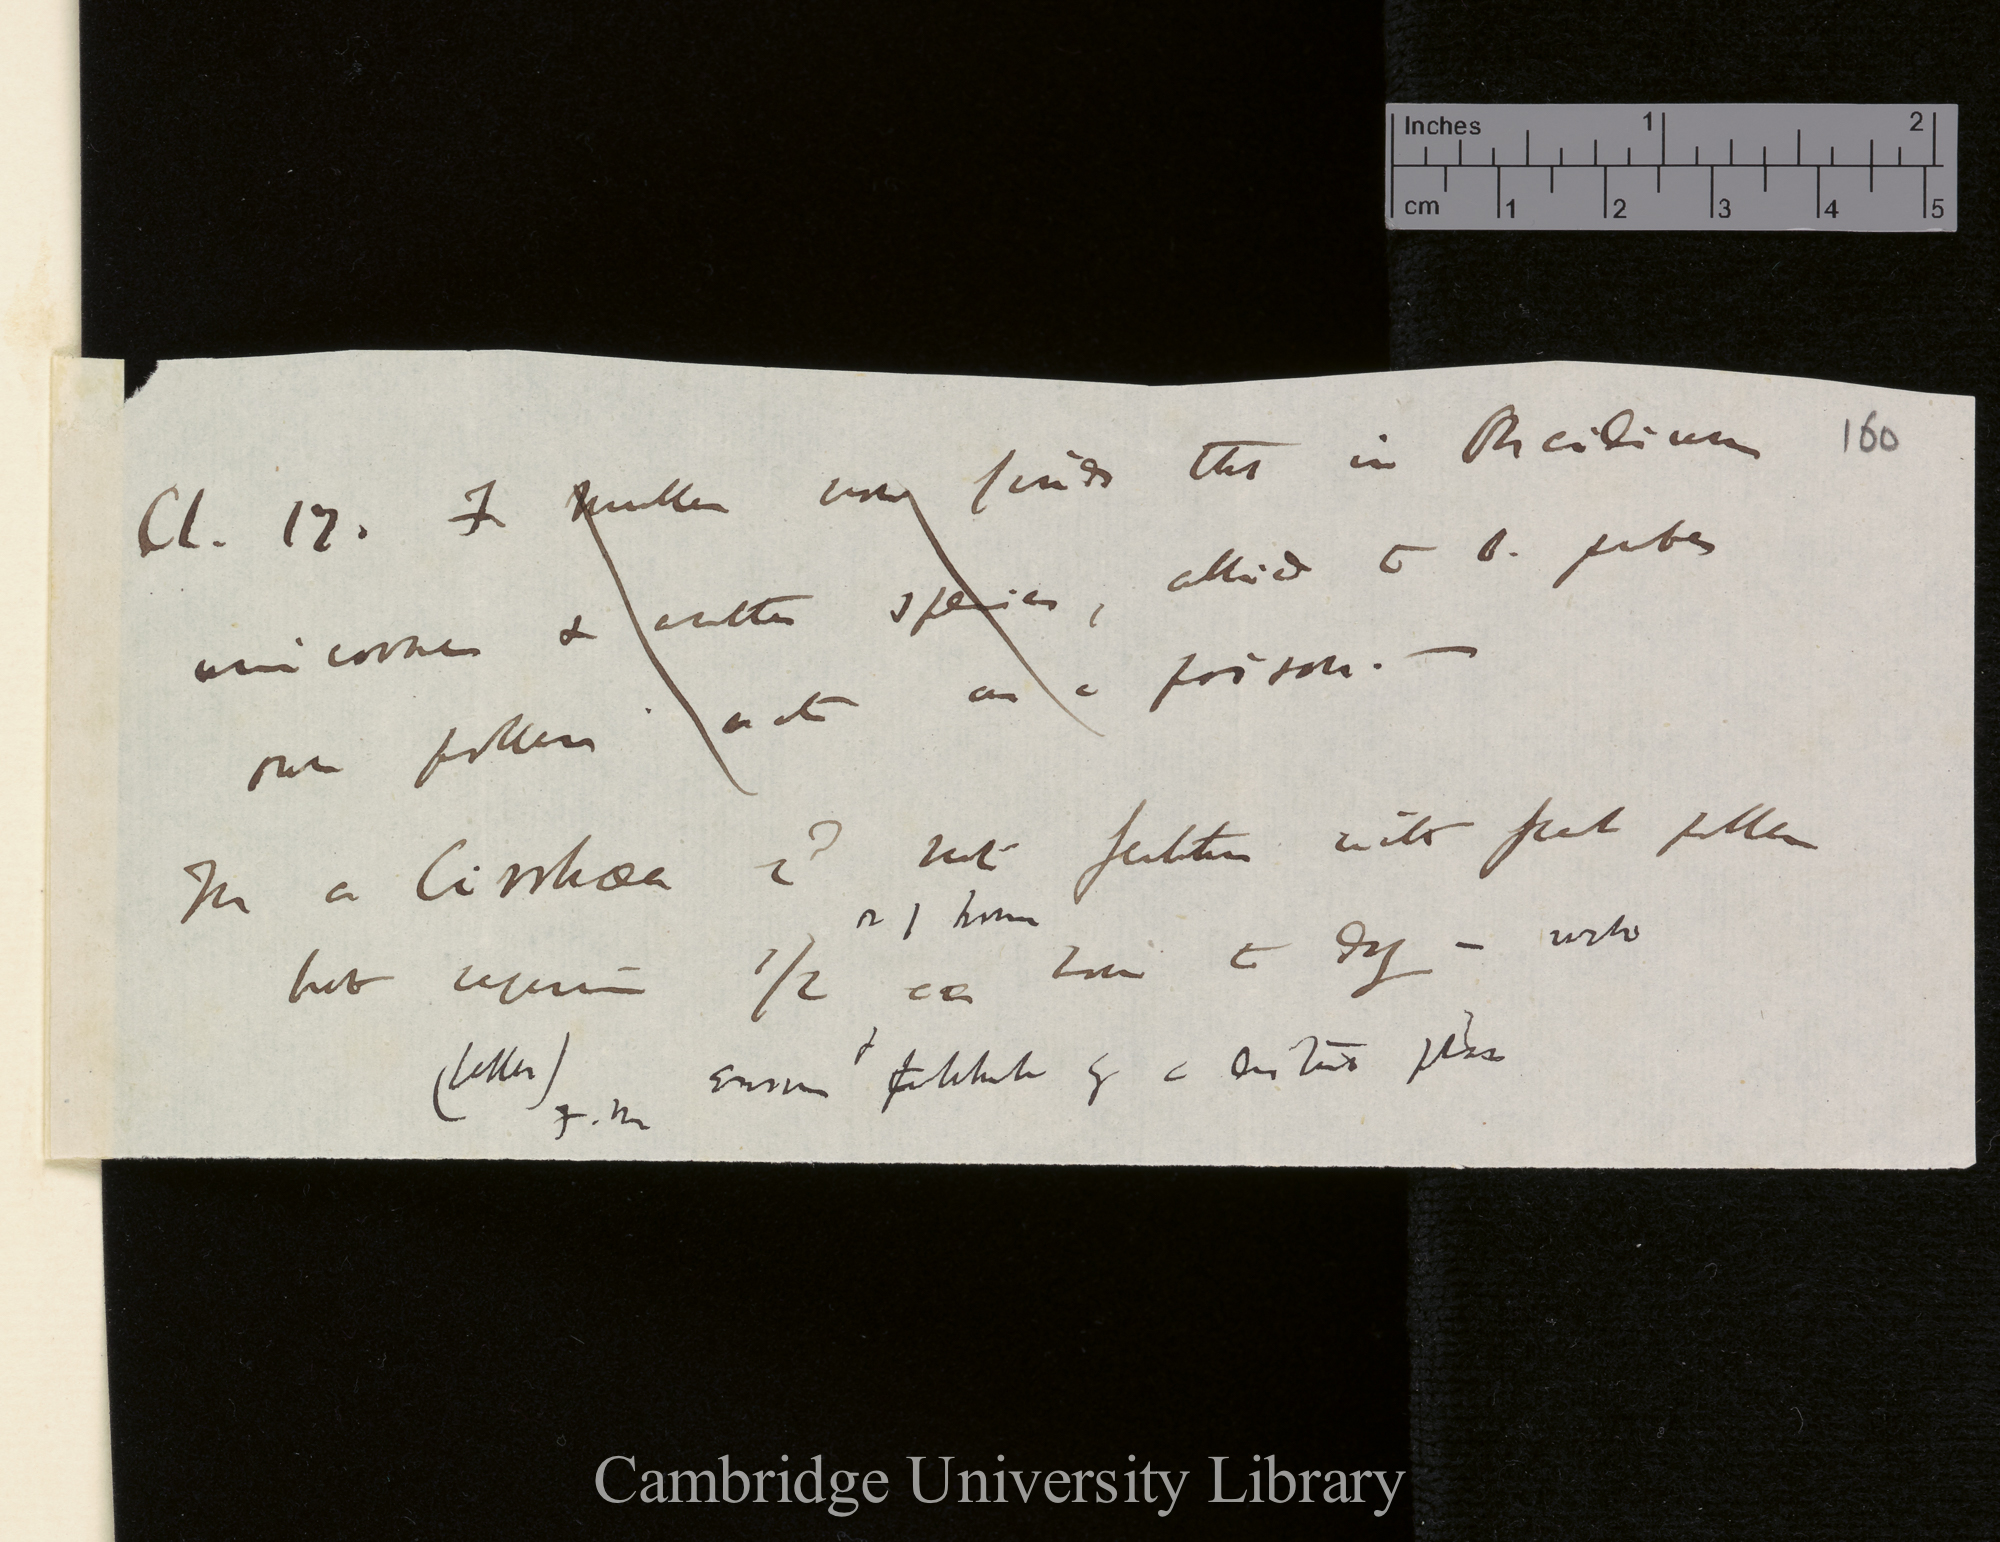 Inches 1 2
cm 1 2 3 4 5
160
Ch. 17. F Muller now finds that in Oncidium
unicorne & another species, allied to O. pubes
own pollen acts as a poison. —
In a Cirrhæa is? not fertilise with fresh pollen
or 1 hour
but requires 1/2 an hour to dry —
(letter) F. M & fertilised by a distinct plan
Cambridge University Library